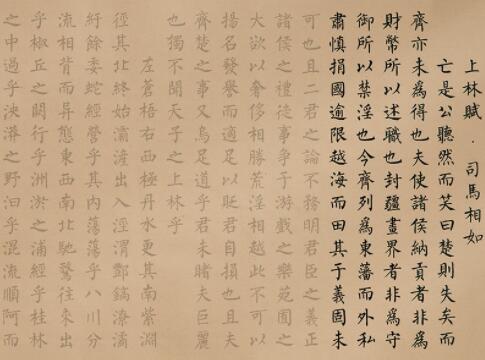 上林賦 . 司馬相如
亡是公聽然而笑曰楚則失矣而
齊亦未爲得也夫使諸侯納貢者非爲
財幣所以述職也封疆畫界者非爲守
御所以禁淫也今齊列爲東藩而外私
肅慎捐國逾限越海而田其于義固未
可也且二君之論不務明君臣之義正
諸侯之禮徒事争于游戲之樂苑囿之
大欲以奢侈相勝荒淫相越此不可以
揚名發譽而適足以貶君自損也且夫
齊楚之事又烏足道乎君未睹夫巨麗
也獨不聞天子之上林乎
左蒼梧右西極丹水更其南紫淵
徑其北終始灞滻出入涇渭酆鎬潦潏
紆餘委蛇經營乎其內蕩蕩乎八川分
流相背而异態東西南北馳騖往來出
乎椒丘之闕行乎洲淤之浦經乎桂林
之中過乎泱漭之野汩乎混流順阿而